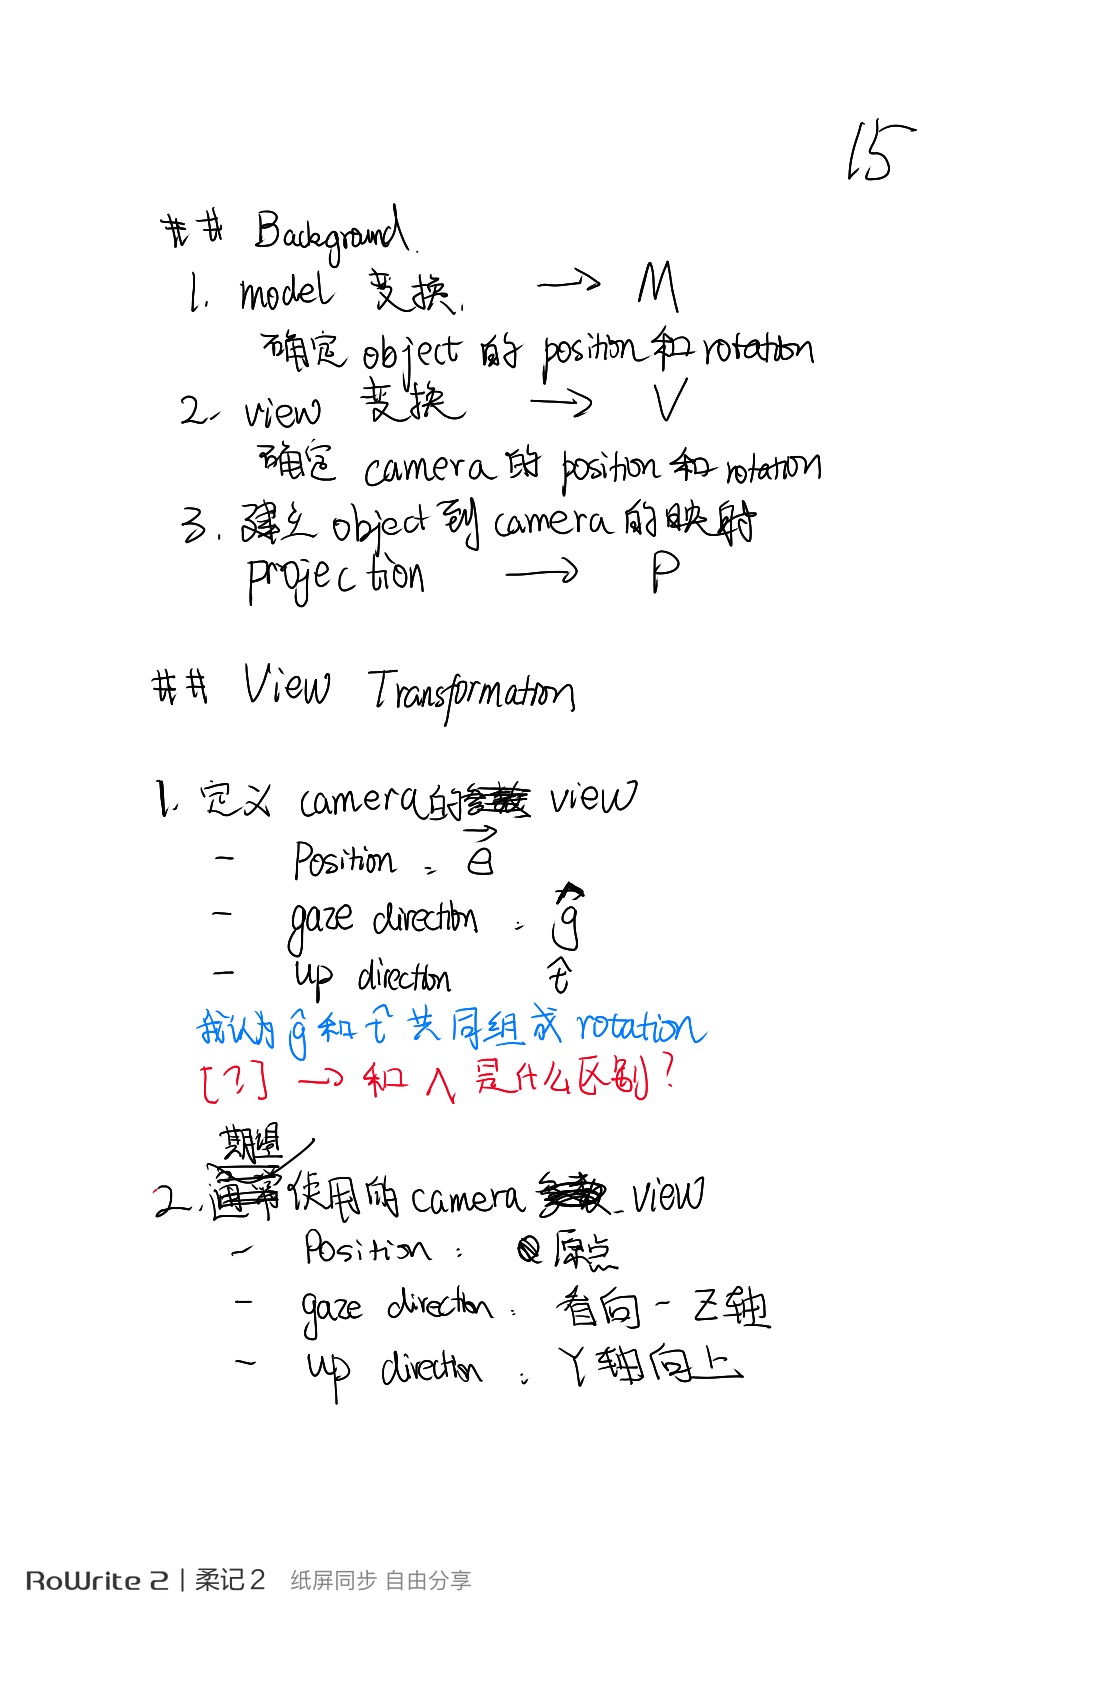 15
## Background.
1. model 变换. → M
确定 object 的 position 和 rotation
2. view 变换 → V
确定 camera 的 position 和 rotation
3. 建立 object 到 camera 的映射
projection → P
## View Transformation
1. 定义 camera 的 view
- Position : e⃗
- gaze direction : ĝ
- up direction t̂
我认为 ĝ 和 t̂ 共同组成 rotation
[?] → 和 ∧ 是什么区别?
期望
2. 使用的 camera view
- Position : 原点
- gaze direction : 看向 - Z轴
- up direction : Y轴向上
RoWrite 2 | 柔记 2 纸屏同步 自由分享